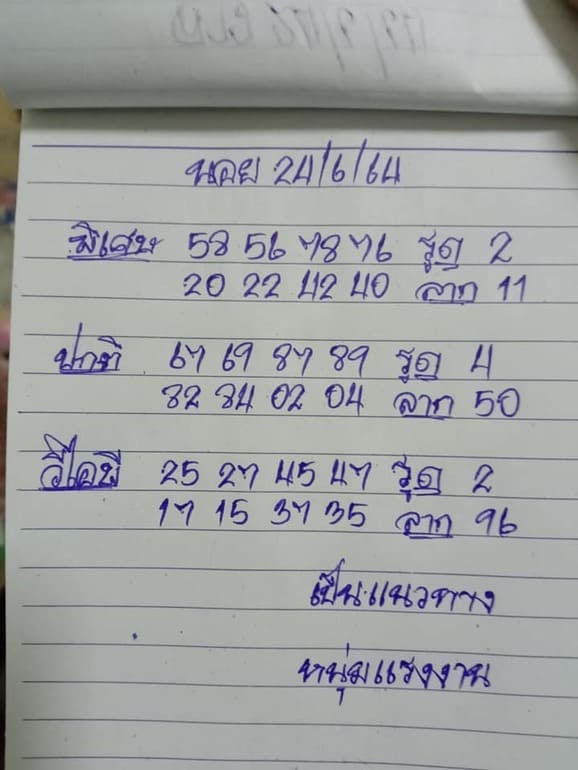 นอย 24/6/64
พิเศษ 58 56 78 76 รูด 2
20 22 42 40 ลาก 11
ปกติ 67 69 87 89 รูด 4
82 84 02 04 ลาก 50
วีไอพี 25 27 45 47 รูด 2
17 15 37 35 ลาก 96
เป็นแนวทาง
หนุ่มแรงงาน